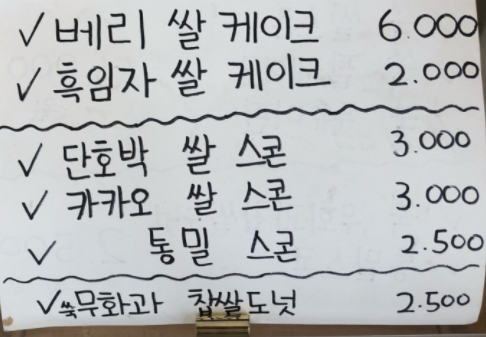 ✓ 베리 쌀 케이크 6.000
✓ 흑임자 쌀 케이크 2.000
✓ 단호박 쌀 스콘 3.000
✓ 카카오 쌀 스콘 3.000
✓ 통밀 스콘 2.500
✓ 쑥무화과 찹쌀도넛 2.500